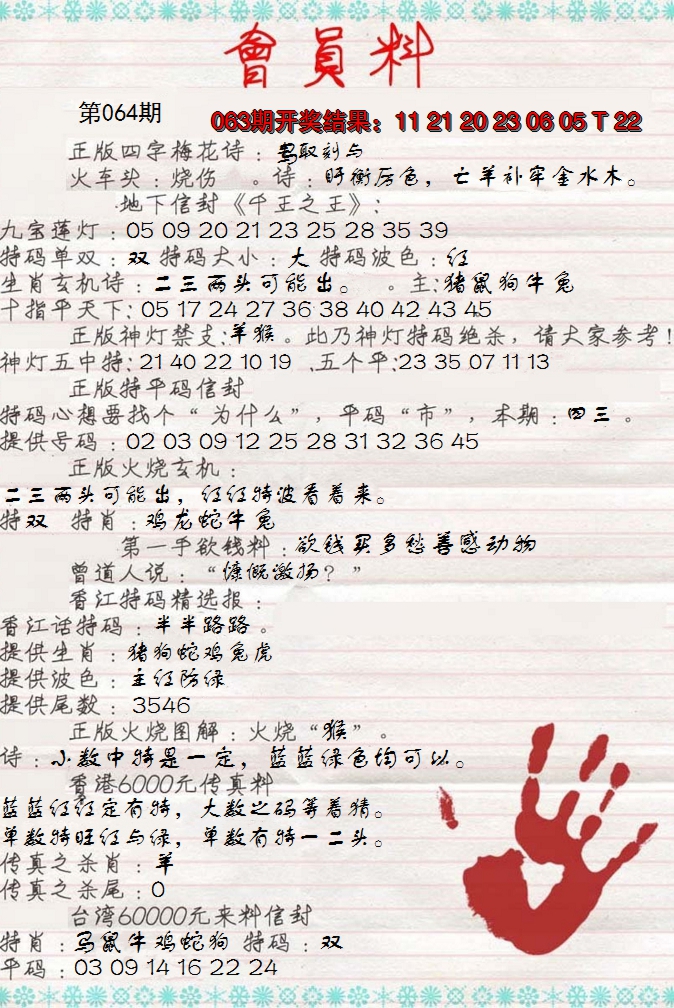 會員料
第064期
063期开奖结果：11 21 20 23 06 05 T 22
正版四字梅花诗：驾取刻与
火车头：烧伤 。诗：盱衡厉色，亡羊补牢金水木。
地下信封《千王之王》：
九宝莲灯：05 09 20 21 23 25 28 35 39
特码单双：双 特码大小：大 特码波色：红
生肖玄机诗：二三两头可能出。 。主：猪鼠狗牛兔
十指平天下：05 17 24 27 36 38 40 42 43 45
正版神灯禁支：羊猴。此乃神灯特码绝杀，请大家参考！
神灯五中特：21 40 22 10 19 、五个平：23 35 07 11 13
正版特平码信封
特码心想要找个“为什么”，平码“市”，本期：四三。
提供号码：02 03 09 12 25 28 31 32 36 45
正版火烧玄机：
二三两头可能出，红红特波看着来。
特双 特肖：鸡龙蛇牛兔
第一手欲钱料：欲钱买多愁善感动物
曾道人说：“慷慨激扬？”
香江特码精选报：
香江话特码：半半路路。
提供生肖：猪狗蛇鸡兔虎
提供波色：主红防绿
提供尾数：3546
正版火烧图解：火烧“猴”。
诗：小数中特是一定，蓝蓝绿色均可以。
香港6000元传真料
蓝蓝红红定有特，大数之码等着猜。
单数特旺红与绿，单数有特一二头。
传真之杀肖：羊
传真之杀尾：0
台湾60000元来料信封
特肖：马鼠牛鸡蛇狗 特码：双
平码：03 09 14 16 22 24